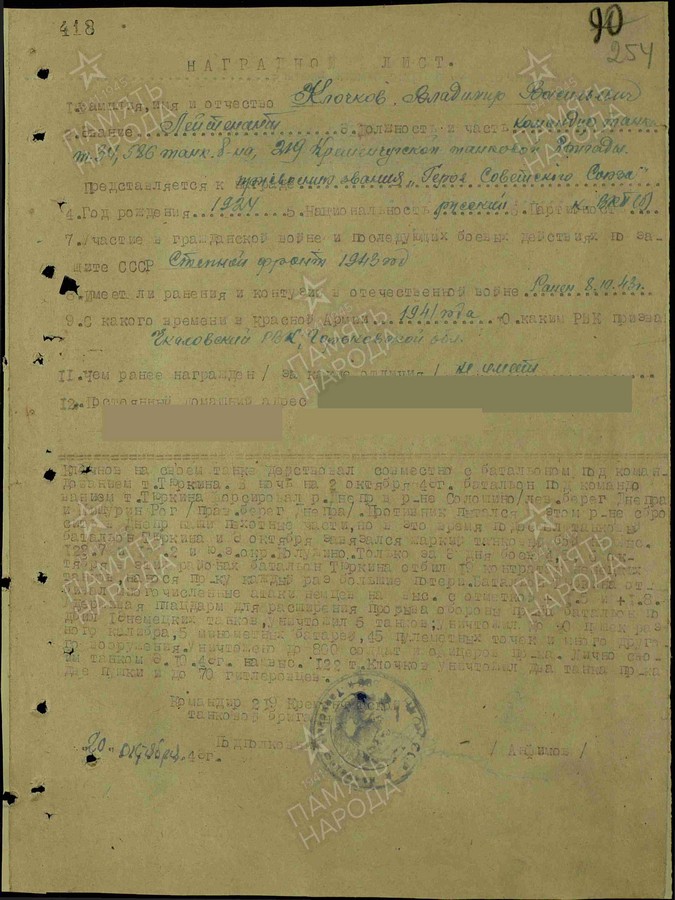 418
90
254
НАГРАДНОЙ ЛИСТ.
1.Фамилия,имя и отчество Клочков Владимир Васильевич
2.Звание Лейтенант 3.Должность и часть командир танка
Т-34, 586 танк. б-на, 219 Кременчугской танковой бригады.
Представляется к присвоению звания "Героя Советского Союза"
4.Год рождения 1924 5.Национальность русский 6.Партийность к. ВКП(б)
7.Участие в гражданской войне и последующих боевых действиях по за-
щите СССР Степной фронт 1943 год
8.Имеет ли ранения и контузии в отечественной войне Ранен 8.10.43г.
9.С какого времени в Красной Армии 1941 года 10.каким РВК призван
Чкаловский РВК, Горьковской обл.
11.Чем ранее награжден /за какие отличия/ не имеет
12.Постоянный домашний адрес
Клочков на своем танке действовал совместно с батальоном под коман-
дованием т.Тюркина. В ночь на 2 октября 4 г. батальон под командо
ванием т.Тюркина форсировал р.Днепр в р-не Солошино/лев.берег Днепра
и Мишурин Рог /прав.берег Днепра/.Противник пытался в этом р-не сбро
сить в Днепр наши пехотные части, но в это время подоспел танковый
батальон Тюркина и октября завязался жаркий танковый бой
129.7 и ю.з.окр. Только за 3 дня боев
тября в этих районах батальон Тюркина отбил 19 контратак
танков, нанося пр-ку каждый раз большие потери.Батальон
бивал многочисленные атаки немцев на выс. с отметкой
удерживая плацдарм для расширения прорыва обороны пр-ка батальон по
дбил немецких танков, уничтожил 6 танков; уничтожил до пушек раз
ного калибра,5 минометных батарей,45 пулеметных точек и много друго
го вооружения.Уничтожено до 800 солдат и офицеров пр-ка.Лично сво
им танком 6.10.4 г. на выс. 122 т.Клочков уничтожил два танка пр-ка
две пушки и до 70 гитлеровцев.
Командир 219
танковой бриг
Подполков
20 октября 4 г.
/ /
ПАМЯТЬ НАРОДА